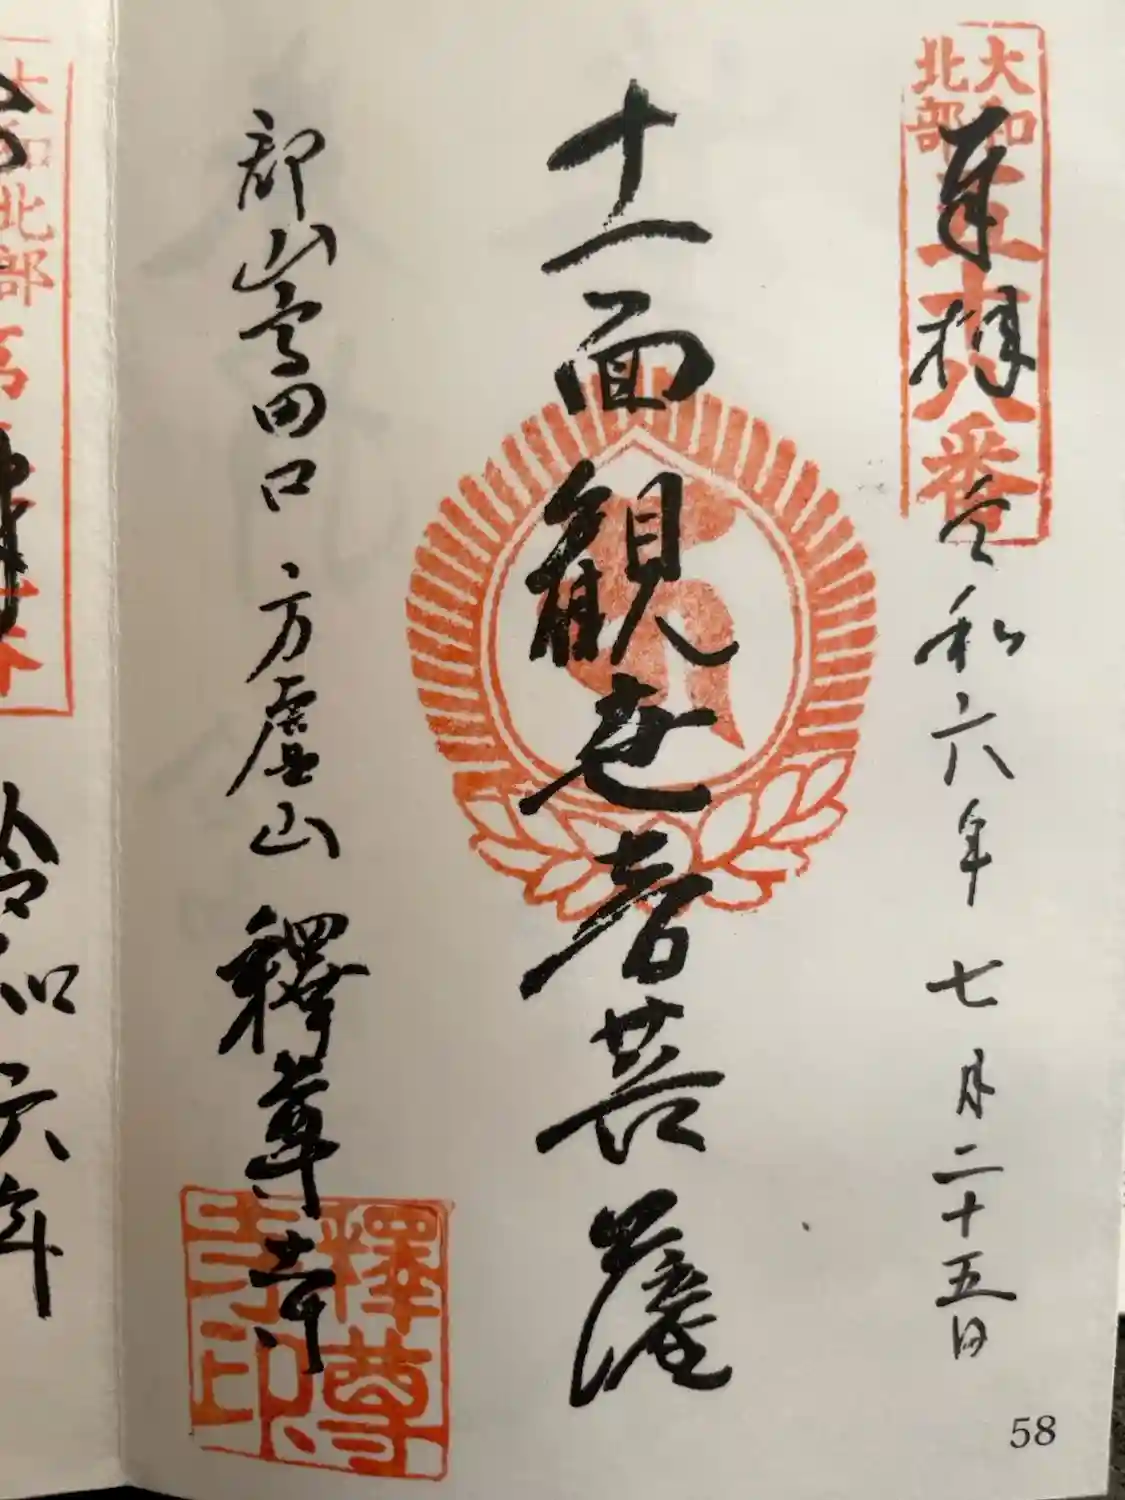 大和
北部
五十八番
奉拝 令和六年 七月二十五日
十一面観世音菩薩
郡山高田口 方廣山 釋尊寺
釋尊
寺印
58
大和北部第
令和六年